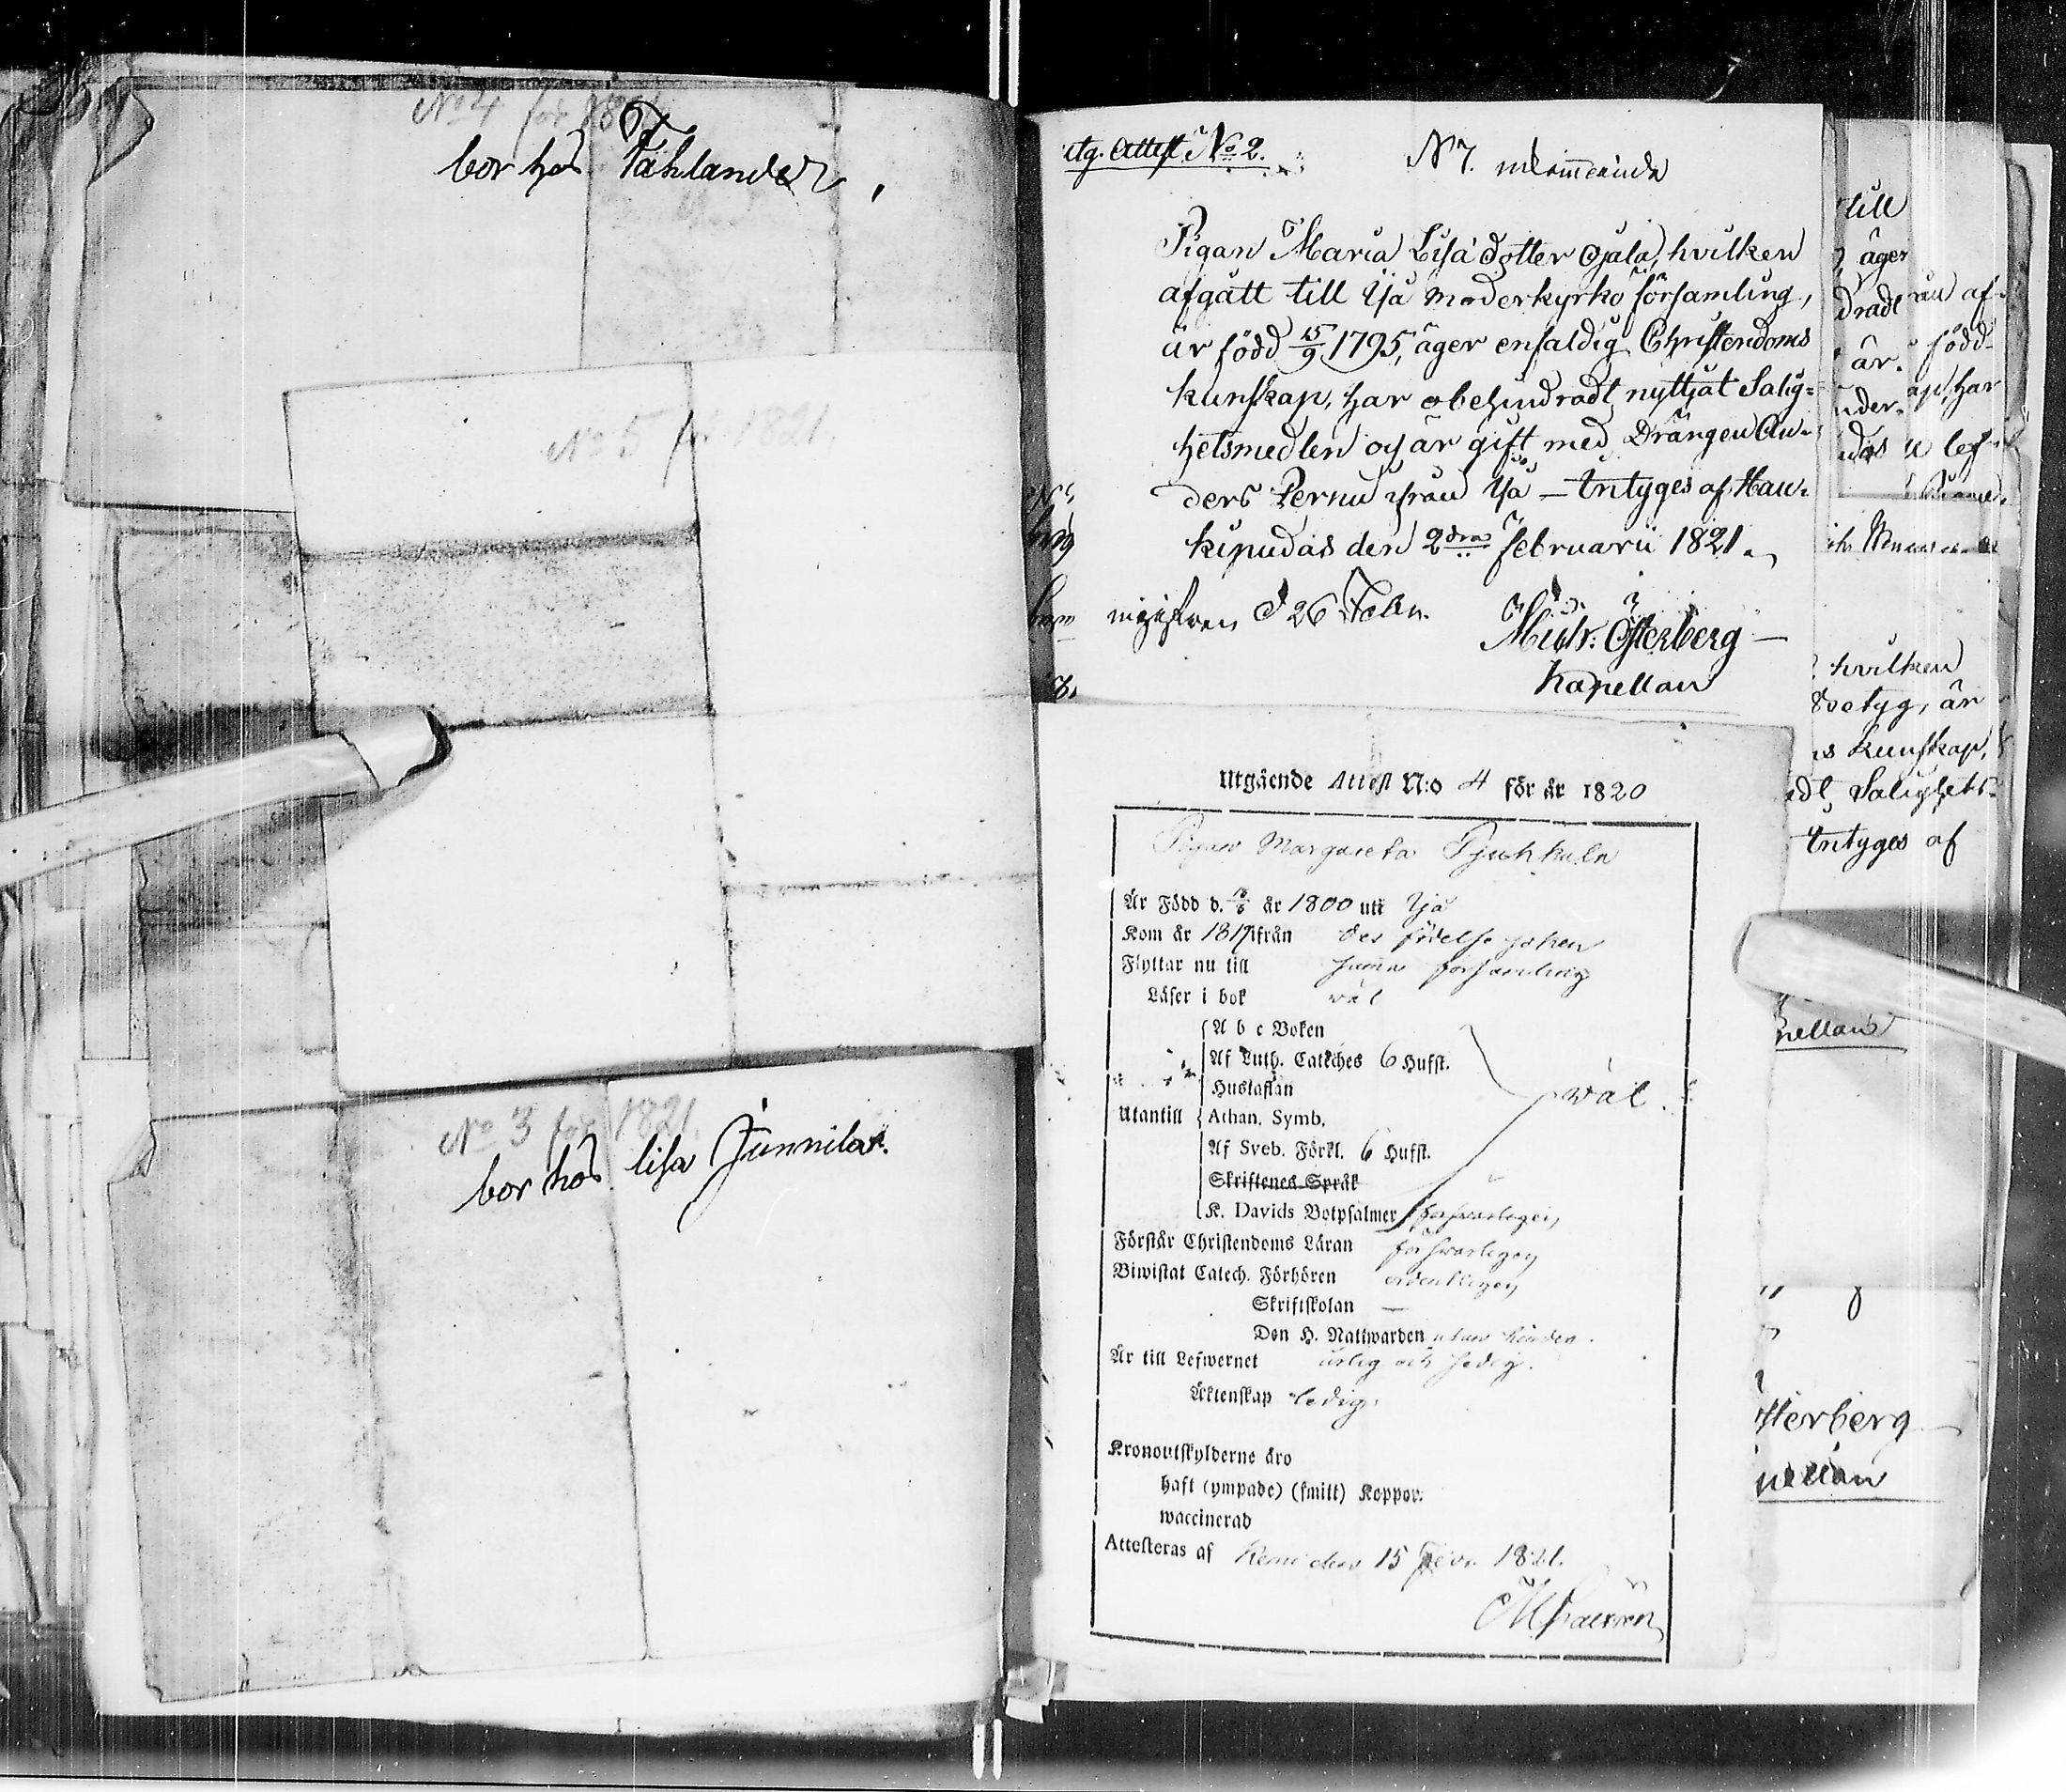 No 4 för 18
bor hos Fahlander,
No 5 för 1821.
No 3 för 1821.
bor hos lisa Junnila.
utg. Attest No 2.
N 7. inkommande
Pigan Maria Lisa dotter Ojala, hvilken
afgått till Ijå moderkyrko församling,
är född 15/9 1795, äger enfaldig Christendoms
kunskap, har obehindradt nyttjat Salig=
hetsmedlen och är gift med Drängen An-
ders Pernu ifrån Ijå — Intyges af Hau-
kipudas den 2dra februarii 1821.
d 26 Febr.
Mich: Österberg —
Kapellan
Utgående Attest N:o 4 för år 1820
Pigan Margareta
Är Född d. år 1800 uti Ijå
Kom år 1817 ifrån des födelse soken
Flyttar nu till samma församling
Läser i bok wäl
A b c Boken
Af Luth. Catéches 6 Hufst.
Hustaflan
Utantill Athan. Symb.
wäl
Af Sveb. Förkl. 6 Hufst.
Skriftenes Språk
K. Davids Botpsalmer försvarligen
Förstår Christendoms Läran försvarligen
Biwistat Catech. Förhören ordentligen
Skriftskolan —
Den H. Nattwarden utan hinder.
Är till Lefwernet ärlig och sedig.
Äktenskap ledig.
Kronoutskylderne äro
haft (ympade) (smitt) Koppor.
waccinerad
Attesteras af Kemi den 15 Febr. 1821.
till
äger
dradt
är.
född
har
hvilken
är
kunskap,
Salighets-
Intyges af